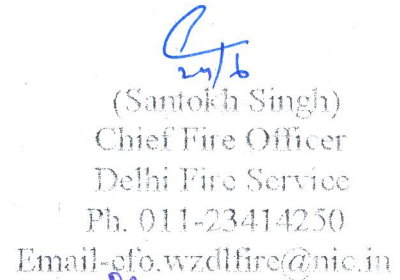 (Santokh Singh)
Chief Fire Officer
Delhi Fire Service
Ph. 011-23414250
Email-cfo.wzdlfire@nic.in